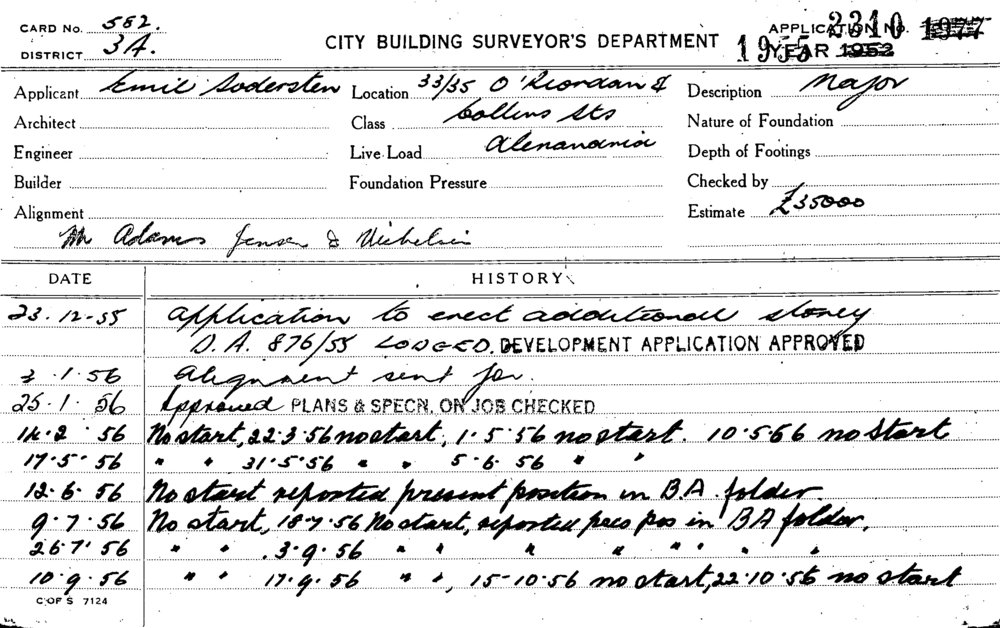 CARD No. 582. APPLICATION No. 2310 1977
DISTRICT 3A. CITY BUILDING SURVEYOR'S DEPARTMENT 1955 YEAR 1952
Applicant Emil Sodersten Location 33/35 O'Riordan & Description Major
Architect Class Collins Sts Nature of Foundation
Engineer Live Load Alexandria Depth of Footings
Builder Foundation Pressure Checked by
Alignment Estimate £35000
Adams Jensen &
DATE HISTORY
23.12.55 Application to erect additional storey
D.A. 876/55 LODGED. DEVELOPMENT APPLICATION APPROVED
3.1.56 Alignment sent for.
25.1.56 Approved PLANS & SPECN. ON JOB CHECKED
14.2.56 No start, 22.3.56 no start, 1.5.56 no start. 10.5.56 no start
17.5.56 " " 31.5.56 " " 5.6.56 " "
12.6.56 No start reported present position in BA folder.
9.7.56 No start, 18.7.56 No start, reported pres pos in BA folder.
26.7.56 " " 3.9.56 " " " " " " " "
10.9.56 " " 17.9.56 " ", 15-10.56 no start, 22.10.56 no start
C OF S 7124